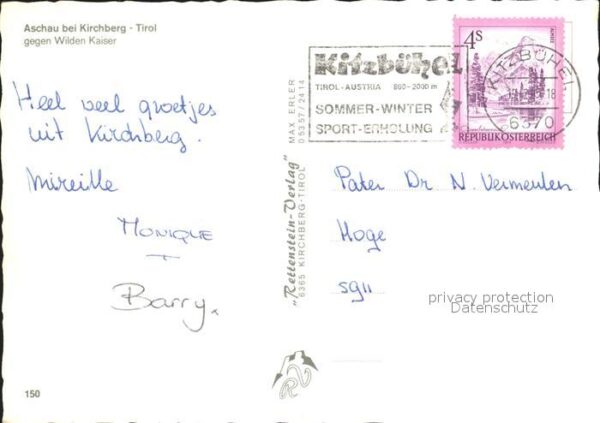 Aschau bei Kirchberg - Tirol
gegen Wilden Kaiser
Heel veel groetjes
uit Kirchberg.
Mireille
MONIQUE
Barry
150
MAX ERLER
0 53 57 / 24 14
"Rettenstein-Verlag"
6365 KIRCHBERG-TIROL
RV
Kitzbühel
TIROL-AUSTRIA 800-2000 m
SOMMER-WINTER
SPORT-ERHOLUNG
4S
REPUBLIK ÖSTERREICH
KITZBÜHEL
6370
Pater Dr N. Vermeulen
Hoge
sgii
privacy protection
Datenschutz